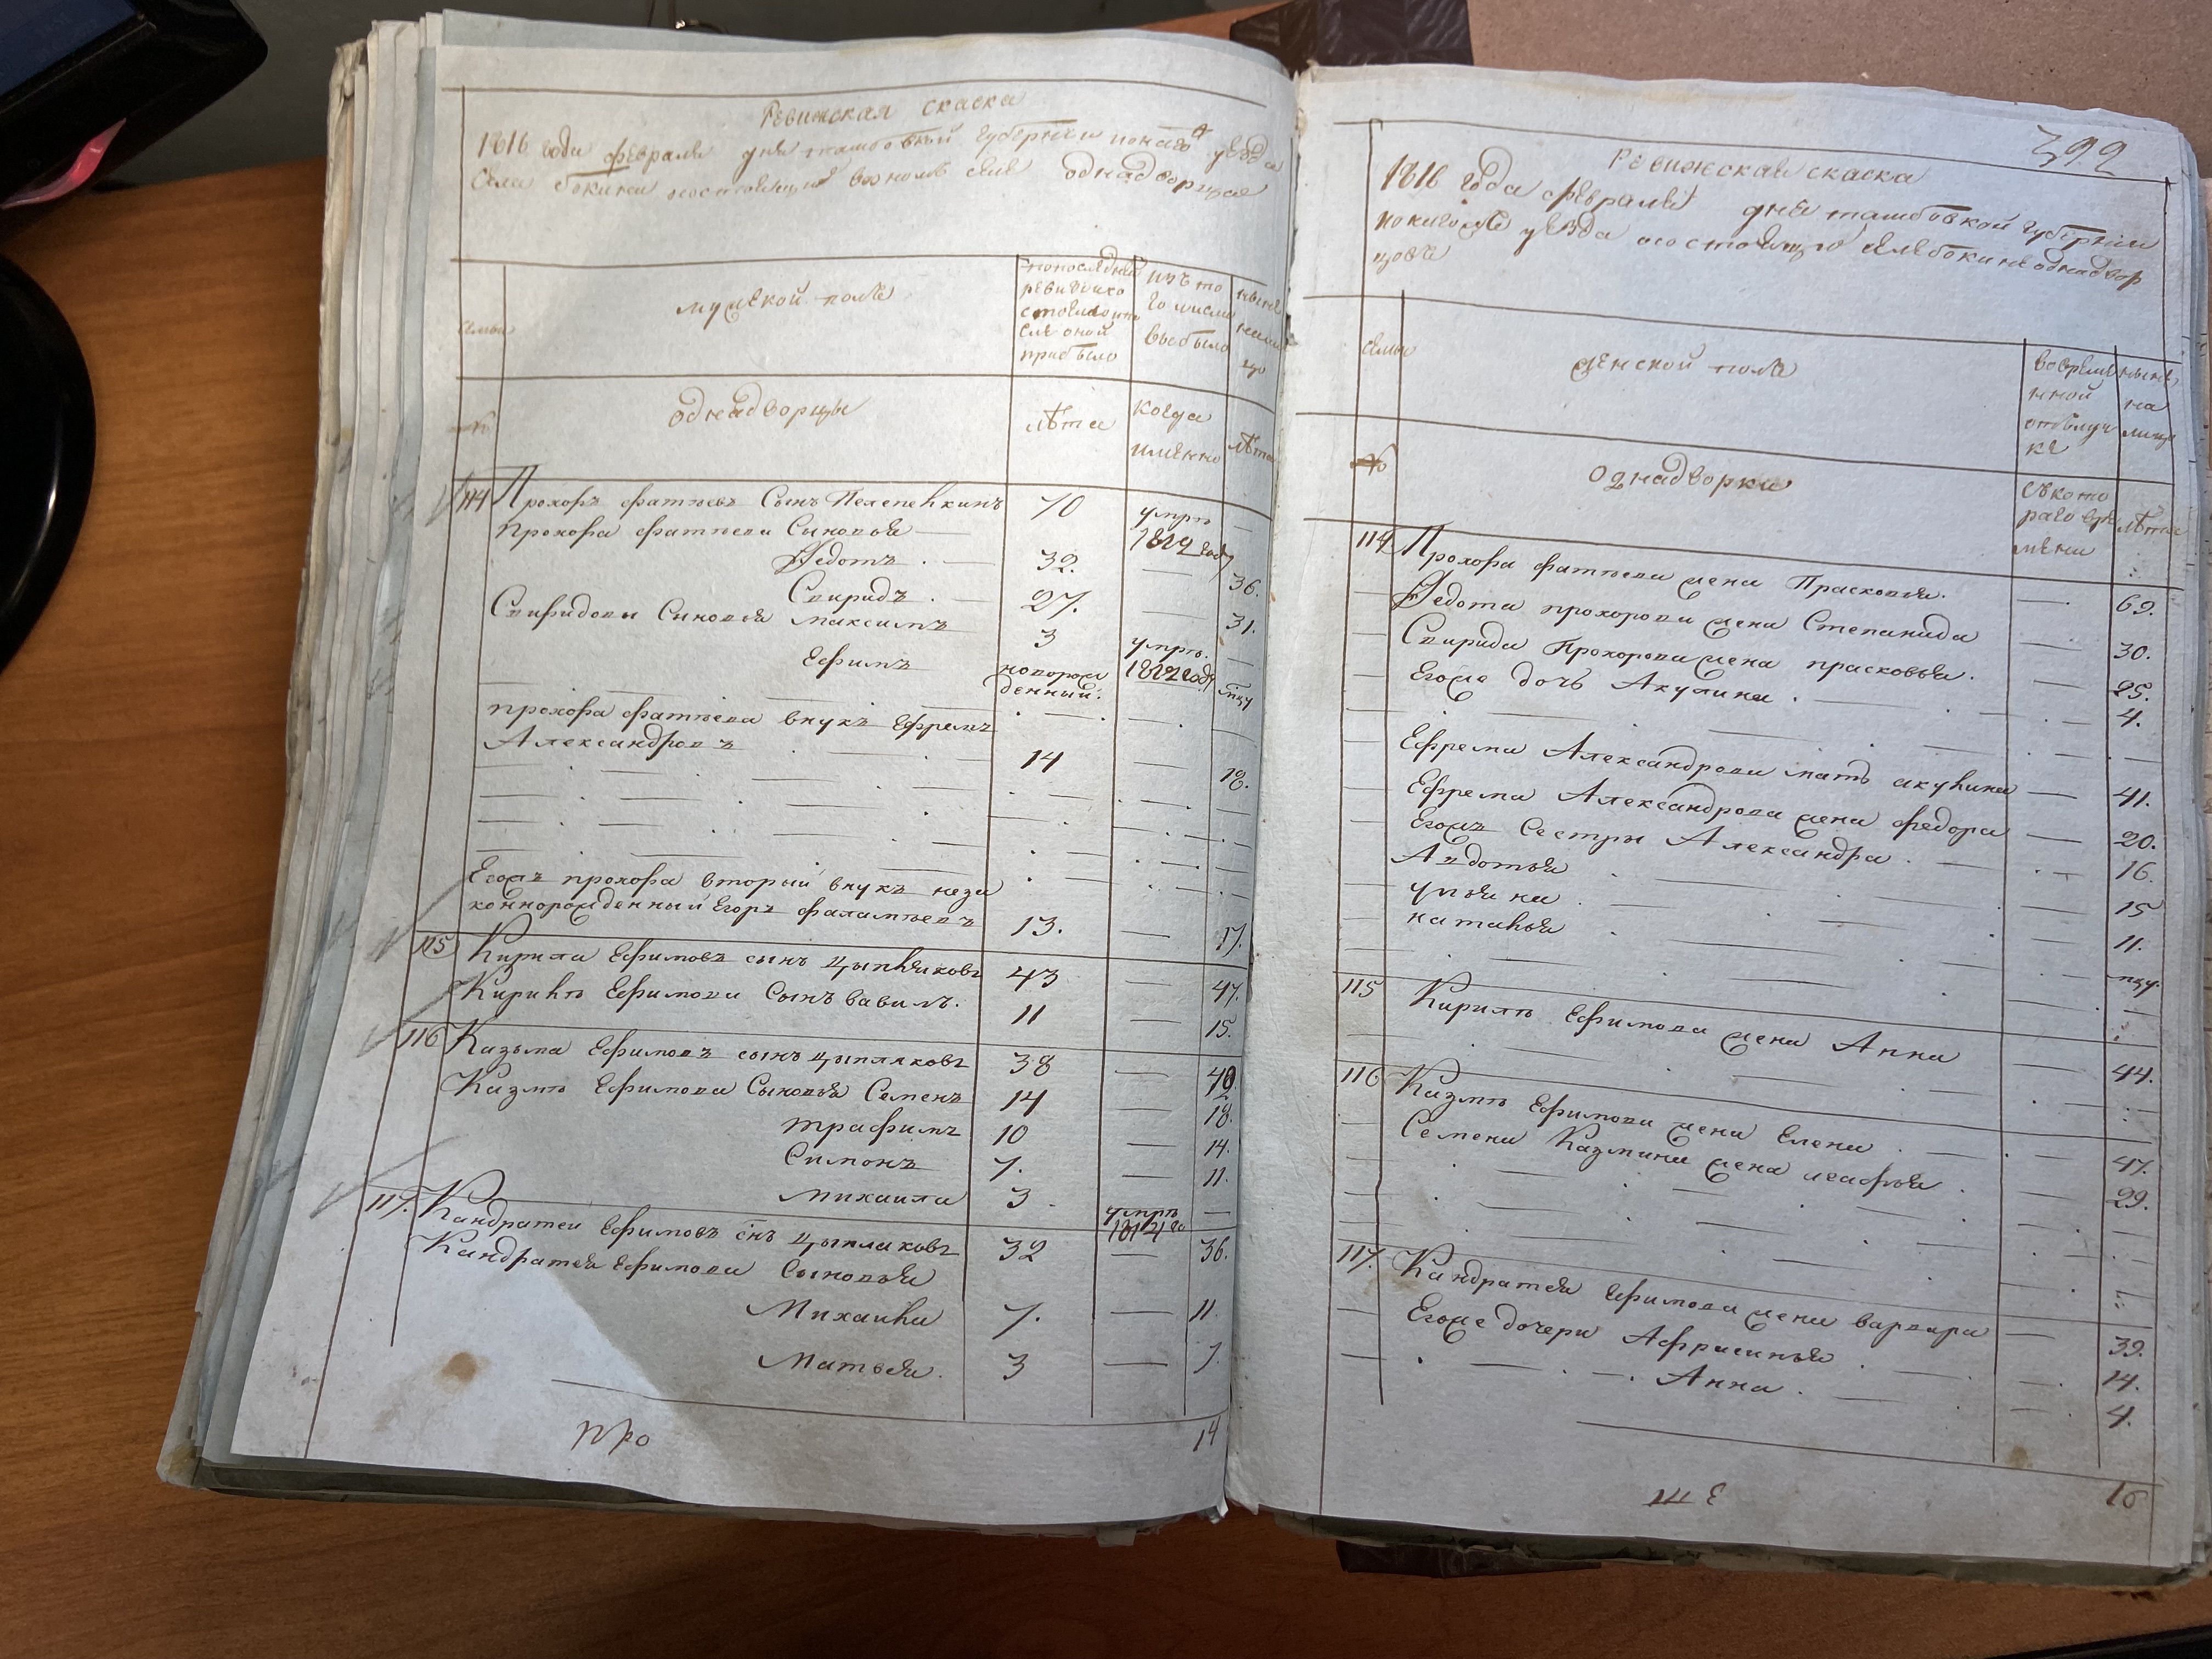 Ревижская скаска
1816 года февраля дня танбовской губернии
села бокина состоящихъ вономъ селе однадворцав
семьи
мужскои полъ
попоследней
ревизи со
стояло ипо
сле оной
прибыло
изъ то
го числа
выбыло
ныне
на ли
цо
№
однадворцы
лѣта
когда
именно
лѣта
114 Прохоръ фатѣевъ Сынъ 70 умре —
Прохора фатѣева Сыновья — 1812 году
Федотъ . — 32. — 36.
Спиридъ . — 27. — 31.
Спиридоны Сыновья максимъ 3 умре. —
Ефимъ новорож 1812 году
денный.
прохора фатѣева внукъ Ефремъ
Александровъ 14 — 18.
Егожъ прохора вторый внукъ неза
коннорожденный Егоръ фалалѣевъ 13. — 17.
115 Кирила Ефимовъ сынъ цыпляковъ 43 — 47.
Кирилы Ефимова Сынъ вавилъ. 11 — 15.
116 Казьма Ефимовъ сынъ цыпляковъ 38 — 42
Казмы Ефимова Сыновья Семенъ 14 — 18.
трафимъ 10 — 14.
Симонъ 7. — 11.
михаила 3 умре —
1814 го
117. Кандратеи Ефимовъ снъ цыплаковъ 32 — 36.
Кандратея Ефимова Сыновья
Михаила 7. — 11.
Матвея. 3 — 7
про 14
392
Ревижская скаска
1816 года февраля дня танбовкой губернии
уезда состоящаго селе бокине однадвор
цовъ
семьи
женской полъ
вовреме
нной
отлуч
ке
ныне
на
лицо
№
Однадворки
съкото
раго вре
мени
лѣта
114 Прохора фатѣева жена Прасковья. — 69.
Федота прохорова жена Степанида — 30.
Спирида Прохорова жена прасковья. — 25.
Егоже дочь Акулина . — 4.
Ефрема Александрова мать акулина — 41.
Ефрема Александрова жена федора — 20.
Егожъ Сестры Александра . — 16.
Авдотья — 15
ульяна . — 11.
наталья
115 Кирилы Ефимова жена Анна — 44.
116 Казмы Ефимова жена Елена . — 47.
Семена Казмина жена . — 29.
117. Кандратея Ефимова жена варвара — 39.
Егоже дочери Афрасинья . — 14.
Анна . — 4.
16